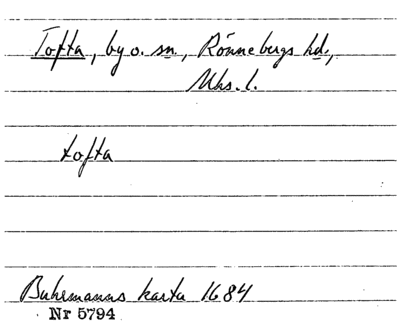 Tofta, by o. sn., Rönnebergs hd.,
Mhs. l.
tofta
Buhrmanns karta 1684
Nr 5794